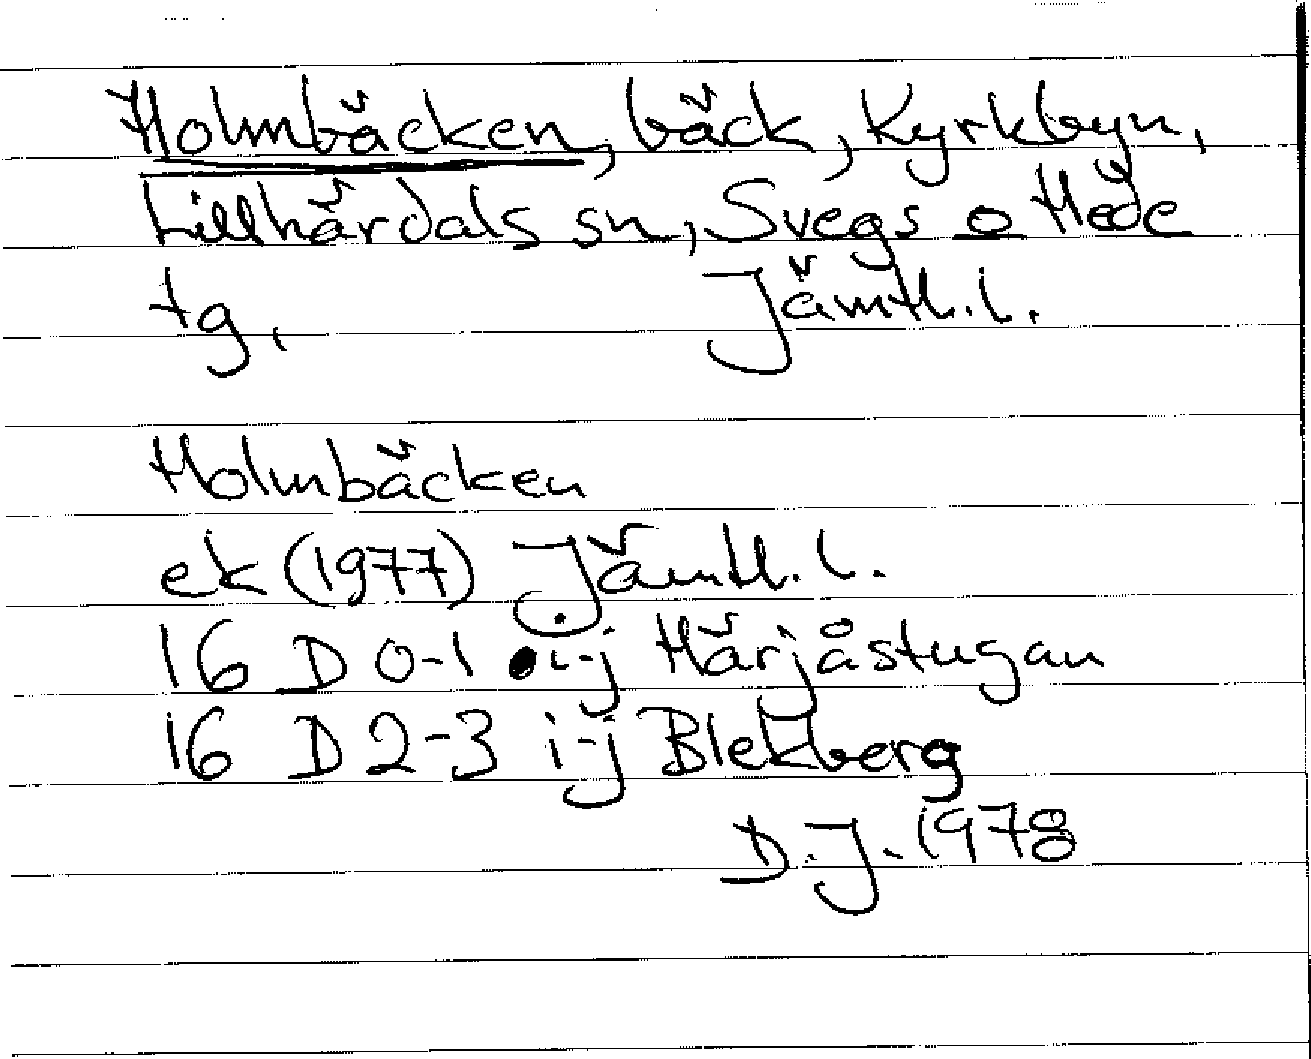 Holmbäcken, bäck, Kyrkbyn,
Lillhärdals sn, Svegs o Hede
tg, Jämtl. l.
Holmbäcken
ek (1977) Jämtl. l.
16 D 0-1 i-j Härjåstugan
16 D 2-3 i-j Blekberg
D.J. 1978